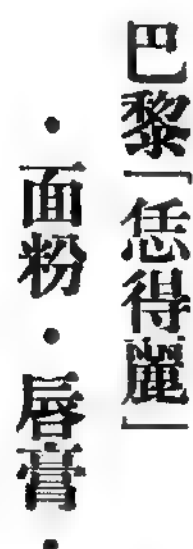 巴黎「恁得麗」
・面粉・唇膏・